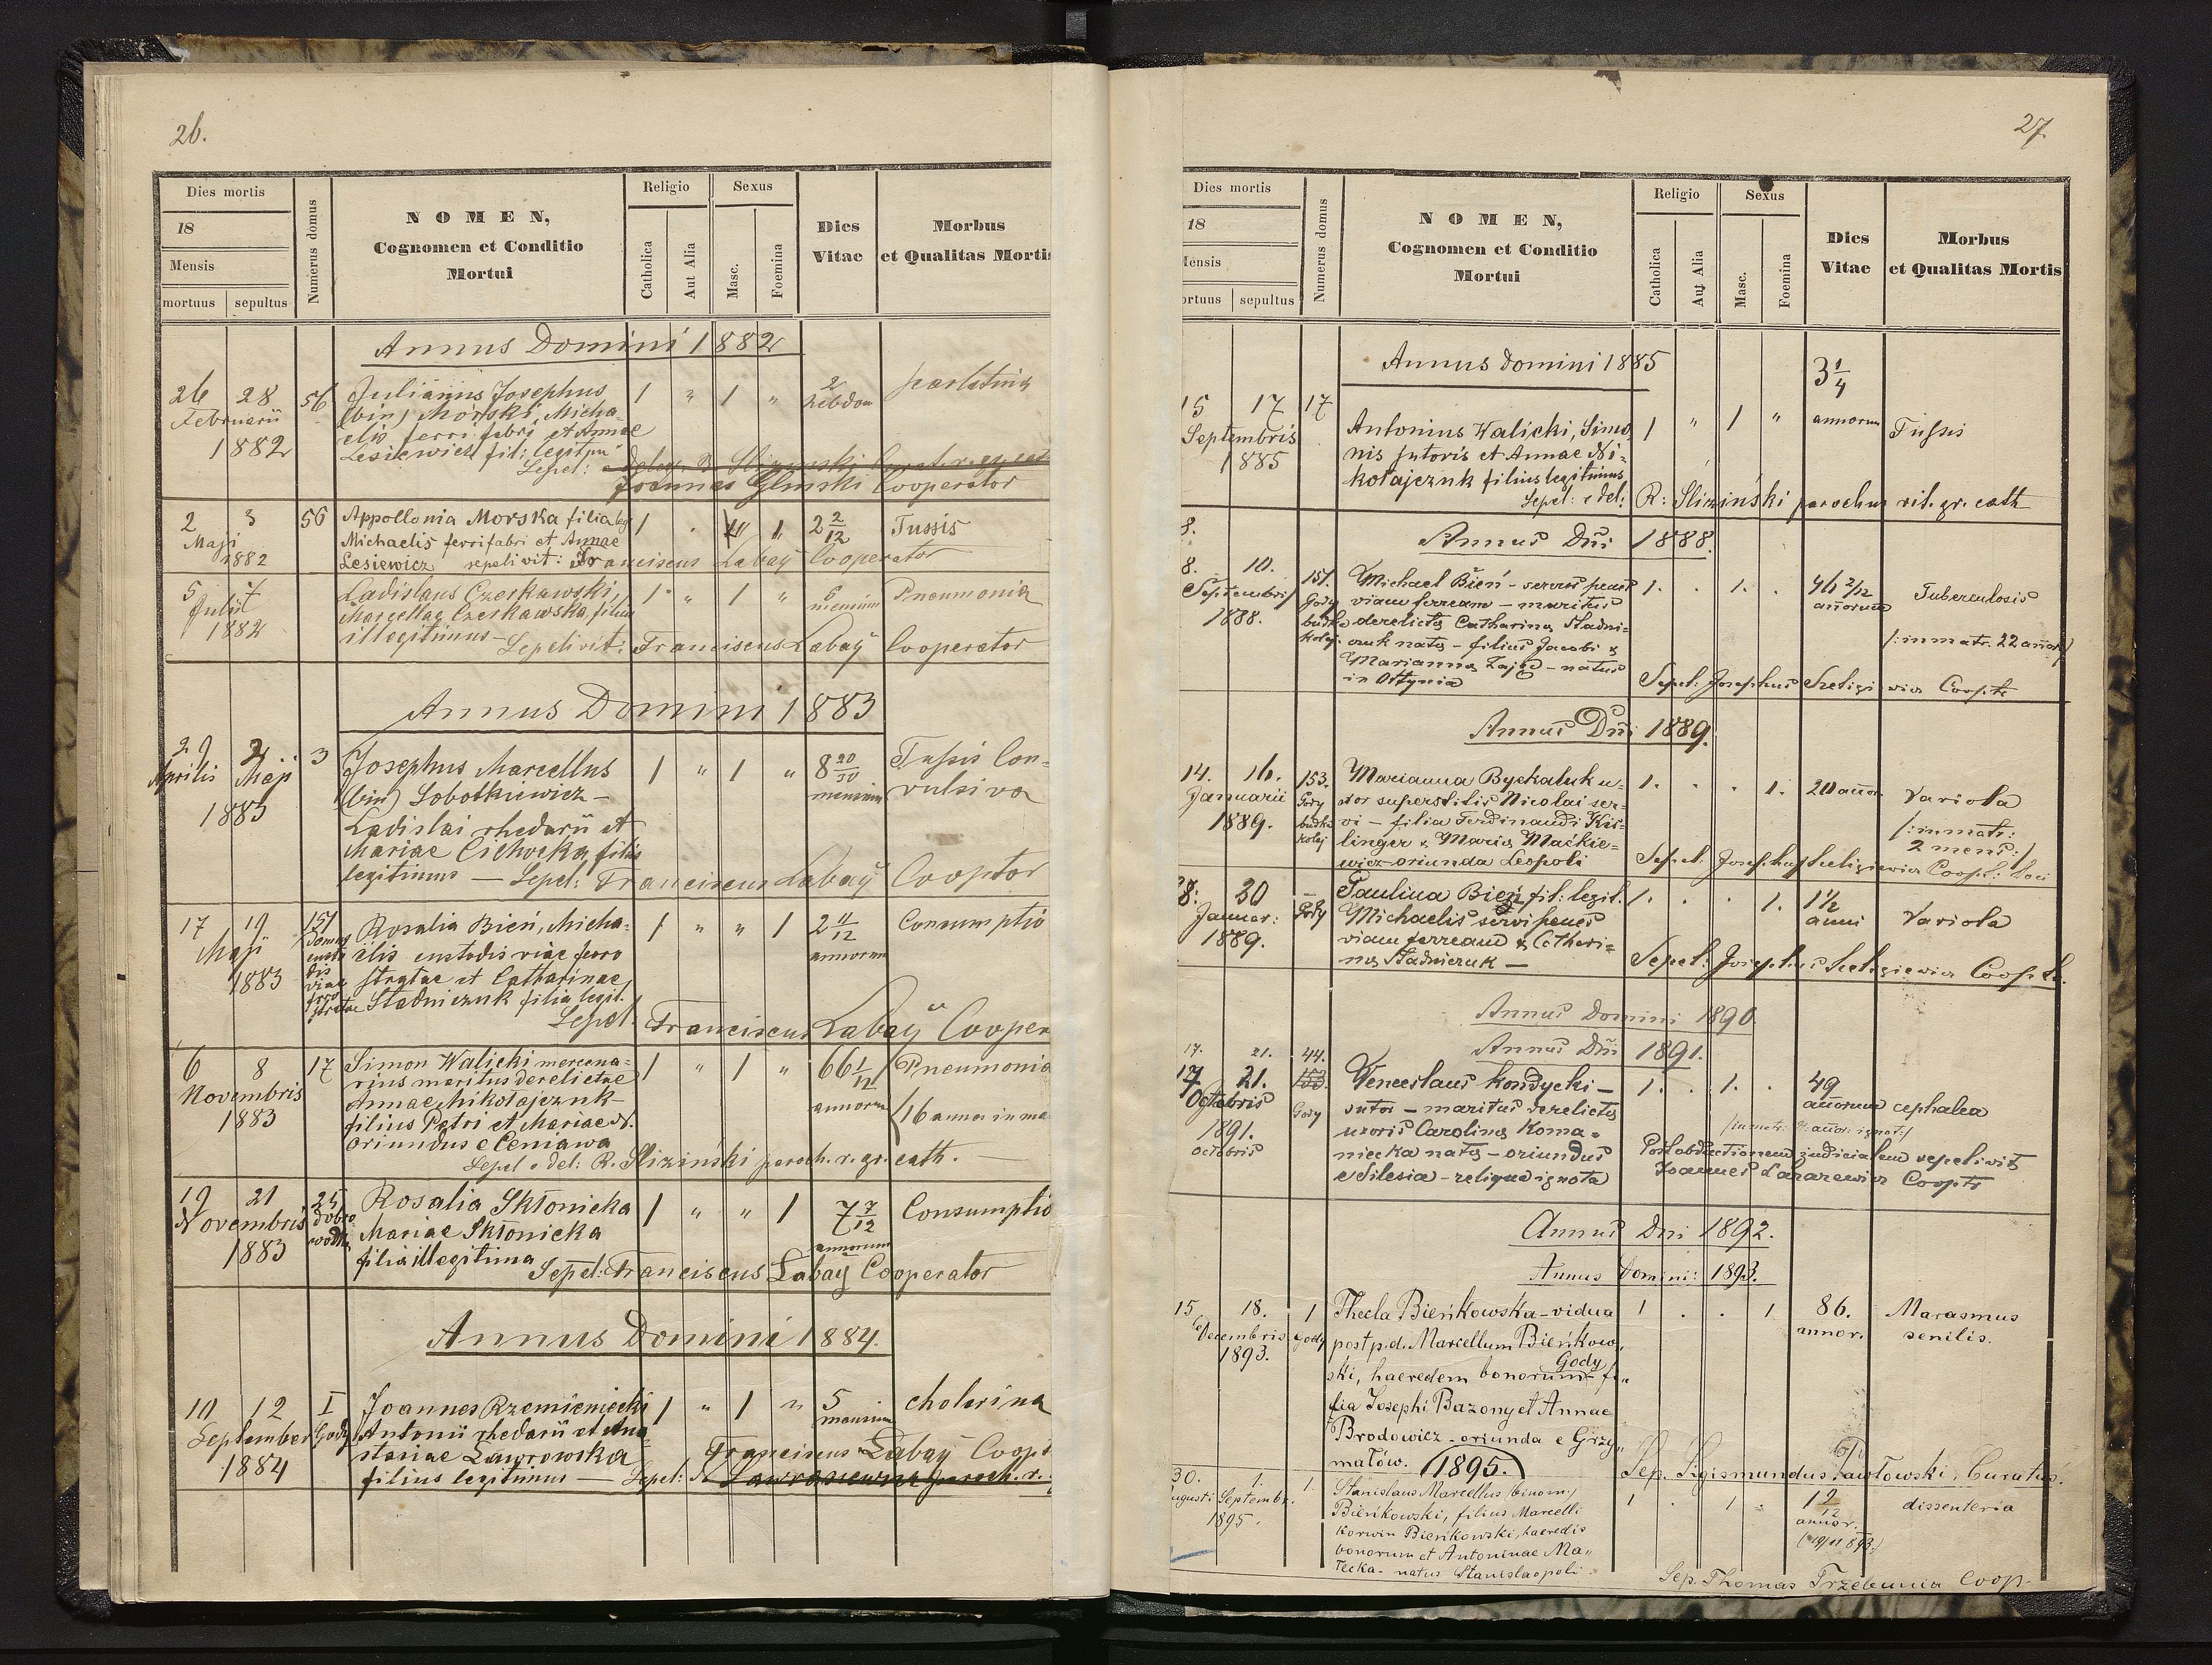 26.
Dies mortis
18
Mensis
mortuus sepultus
Numerus domus
NOMEN,
Cognomen et Conditio
Mortui
Religio
Catholica
Aut Alia
Sexus
Masc.
Foemina
Dies
Vitae
Morbus
et Qualitas Mortis
Annus Domini 1882
26 28 56 Julianus Josephus 1 " 1 " 2
Februarii (bin) Morski, Micha- hebdom
elis ferri fabri et Annae
1882 Lesiewicz fil: legitim
Sepel:
Joannes Glinski Cooperator
2 3 56 Appollonia Morska filia leg 1 . 1 2 2/12 Tussis
Maji Michaelis ferrifabri et Annae
1882 Lesiewicz sepelivit: Franciscus Labaÿ Cooperator
5 7 Ladislaus Czerkawski, 1 " 1 " 6 Pneumonia
Julii Marcellae Czerkawska filius mensium
1882 illegitimus - Sepelivit: Franciscus Labaÿ Cooperator
Annus Domini 1883
29 2 3 Josephus Marcellus 1 " 1 " 8 20/30 Tussis Con-
Aprilis Maji (bin) Sobotkiewicz - mensium vulsiva
1883
Ladislai rhedarii et
Mariae Cichocka filius
legitimus - Sepel: Franciscus Labaÿ Cooptor
17 19 151 Rosalia Bień, Micha- 1 " " 1 2 11/12 Consumptio
Maji Domus custodis viae ferro stratae elis custodis viae ferro annorum
1883 stratae et Catharinae
Stadniczuk filia legit.
Sepel. Franciscus Labaÿ Cooper
6 8 17 Simon Walicki mercena- 1 " 1 " 66 1/12 Pneumonia
Novembris rius maritus derelictae annorum (16 annor in ma
1883 Annae Mikołajczuk
filius Petri et Mariae N.
oriundus e Ceniawa
Sepel e del: R. Slizinski paroch. r. gr. cath. -
19 21 25 Rosalia Skłonicka 1 " " 1 7 7/12 Consumptio
Novembris Dobro wodka Mariae Skłonicka annorum
1883 filia illegitima
Sepel: Franciscus Labaÿ Cooperator
Annus Domini 1884.
10 12 I Joannes Rzemieniecki 1 " 1 " 5 cholerina
September Gody Antonii rhedarii et Ana- mensium
1884 stasiae Lawrowska Franciscus Labaÿ Coop
filius legitimus - Sepel:
27
Dies mortis
18
Mensis
ortuus sepultus
Numerus domus
NOMEN,
Cognomen et Conditio
Mortui
Religio
Catholica
Aut Alia
Sexus
Masc.
Foemina
Dies
Vitae
Morbus
et Qualitas Mortis
Annus Domini 1885
15 17 17 Antonius Walicki, Simo- 1 " 1 " 3 1/4 annorum Tussis
Septembris nis sutoris et Annae Ni-
1885 kołajczuk filius legitimus
Sepel: e del: R: Slizinski parochus rit. gr. cath
8. Annus Dni 1888.
8. 10. 151. Michael Bień - servus penes 1. . 1. . 46 2/12 Tuberculosis
Septembris Gody viam ferream - maritus annorum
1888. budka kolej. derelictae Catharinae Stadni- /:in matr. 22 annor:/
czuk natae - filius Jacobi &
Mariannae Zając - natus
in Ottynia Sepel: Josephus Szeligiewicz Cooptr
Annus Dni 1889.
14. 16. 153. Marianna Byckaluk u- 1. . . 1. 20 annor. Variola
Januarii Gody xor superstitis Nicolai ser- /:in matr:
1889. budka kolej vi - filia Ferdinandi Kis- 2 mens:/
linger & Maria Maćkie-
wicz oriunda Leopoli Sepel: Josephus Szeligiewicz Coop: loci
28: 30 - Paulina Bień fil: legit. 1. . . 1. 1 1/2 Variola
Januar: Gody Michaelis servi penes anni
1889. viam ferream & Cathari-
nae Stadniczuk - Sepel: Josephus Szeligiewicz Cooptr.
Annus Domini 1890
Annus Dni 1891.
17. 21. 44.
17 21. 153. Venceslaus Kondycki - 1. . 1. . 49 cephalea
Octobris Gody sutor - maritus derelictae annorum
1891. uxoris Carolinae Koma-
octobris niecka natae - oriundus Post obductionem judicialem sepelivit
e Silesia - reliqua ignota Joannes Lazarewicz Cooptr
Annus Dni 1892.
Annus Domini: 1893.
15 18. 1 Thecla Bieńkowska - vidua 1 . . 1 86. Marasmus
Decembris Gody post p.d. Marcellum Bieńkow- annor. senilis.
1893. ski, haeredem bonorum Gody fi-
lia Josephi Bazony et Annae
Brodowicz - oriunda e Grzy-
małów. Sep. Sigismundus Pawłowski, Curatus.
1895.
30. 1. 1. Stanislaus Marcellus /binom/ 1 . 1 . 1 9/12 dissenteria
ugusti Septembr. Bieńkowski, filius Marcelli annor.
1895. Korwin Bieńkowski, haeredis
bonorum et Antoninae Ma-
łecka - natus Stanislaopoli.
Sep. Thomas Trzebunia Coop.